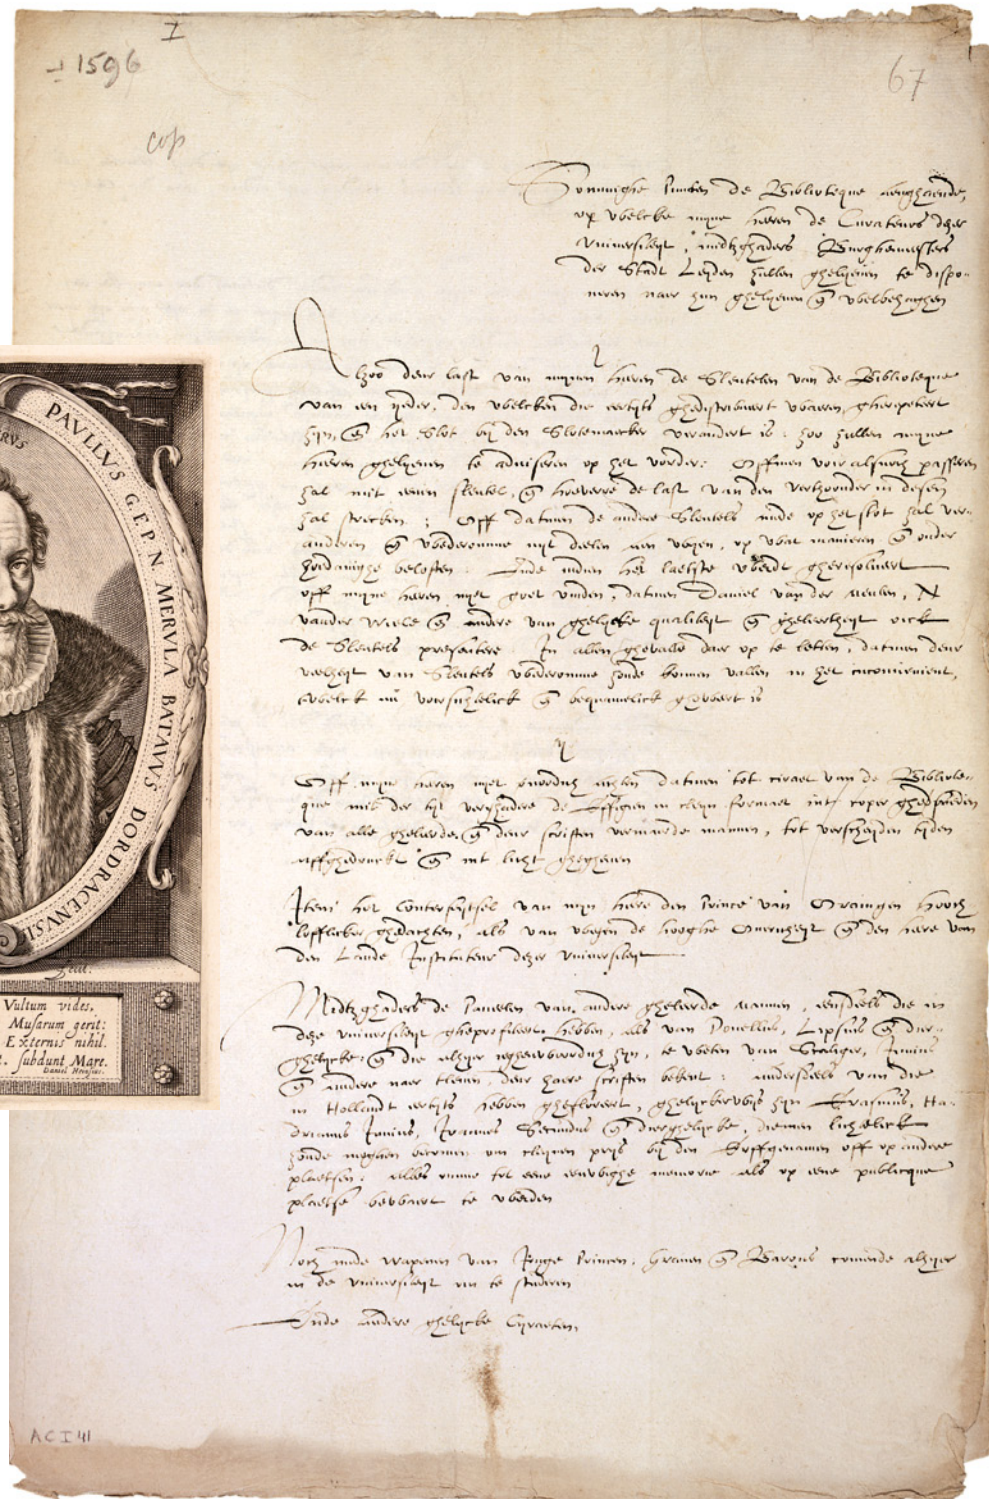 I
± 1596
67
cop
Sommighe Puncten de Biblioteque aenghaende,
op wbelcke myne heeren de Curateurs dezer
Universiteyt, midtzghaders Burghemeesters
der Stadt Leyden zullen ghelyeven te dispo-
neren naer hun ghelyeven ende wbelbehaghen
1
Alzoo deur last van mynen heeren de Sleutelen van de Bibliotheque
van een yeder, den wbelcken die eertyts ghedistribueert wbaeren, gherepeteert
zyn, ende het Slot by den Slotemaecker verandert is: zoo zullen myne
heeren ghelyeven te adviseren op het vorder: Offmen voir alsnoch passeren
zal met eenen sleutel, ende hoeverre de last van den verthoonder in desen
zal strecken: Off datmen de andere Sleutels mede op het slot zal ver-
anderen ende wbederomme uyt deelen, op wbat manieren ende onder
hoedanighe beloften. Ende indien het laetste wberdt gheresolveert
off myne heeren niet goet vinden, datmen Daniel van der Meulen, N
vander Wiele ende andere van ghelycke qualiteyt ende gheleertheyt oick
de Sleutels presentere. In allen ghevalle daer op te letten, datmen deur
veelheyt van Sleutels wbederomme zoude komen vallen in het inconvenient,
twbelck nu voorsichtelick ende bequamelick ghewbeert is
2
Off myne heeren niet onnodich achten datmen tot ciraet van de Bibliote-
que mitter tyt verghadere de Effigien in cleyn formaet int coper ghesneden
van alle gheleerde ende deur scriften vermaerde mannen, tot verscheyden tyden
uffghedruckt ende int licht ghegheven
Item het Conterfeytsel van myn heere den Prince van Oraingien hooch
lofflicker ghedachten, als van wbegen de hooghe Overheyt ende den heere van
den Lande Instituteur dezer Universiteyt
Midtzghaders de Paneelen van andere gheleerde mannen, eensdeels die in
deze universiteyt gheprofiteert hebben, als van Donellus, Lipsius ende dier-
ghelycke ende die alhyer jeghenwoordich zyn, te wbeten van Scaliger, Junius
ende andere naer tleven, deur haere scriften bekent: andersdeels van die
in Hollandt eertyts hebben ghefloreert, ghelyckerwbys zyn Erasmus, Ha-
drianus Junius, Joannes Secundus ende dierghelycke, diemen lichtelick
zoude moghen becomen om cleynen prys by den Erffgenamen off op andere
plaetsen: alles omme tot eene eeuwbighe memorie als op eene publicque
plaetse bewbaert te wberden
Noch mede wapenen van Jonge Princen, Graven ende Barons comende alhyer
in de Universiteyt om te studeren
Ende andere ghelycke Cyraeten.
A C I 41
PAVLLVS G.F.P.N. MERVLA BATAVVS DORDRACENVSI
Vultum vides,
Musarum gerit:
Externis nihil.
subdunt Mare.
Daniel Heinsius.